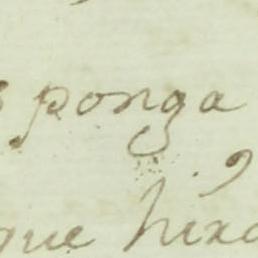 ponga
que hixo